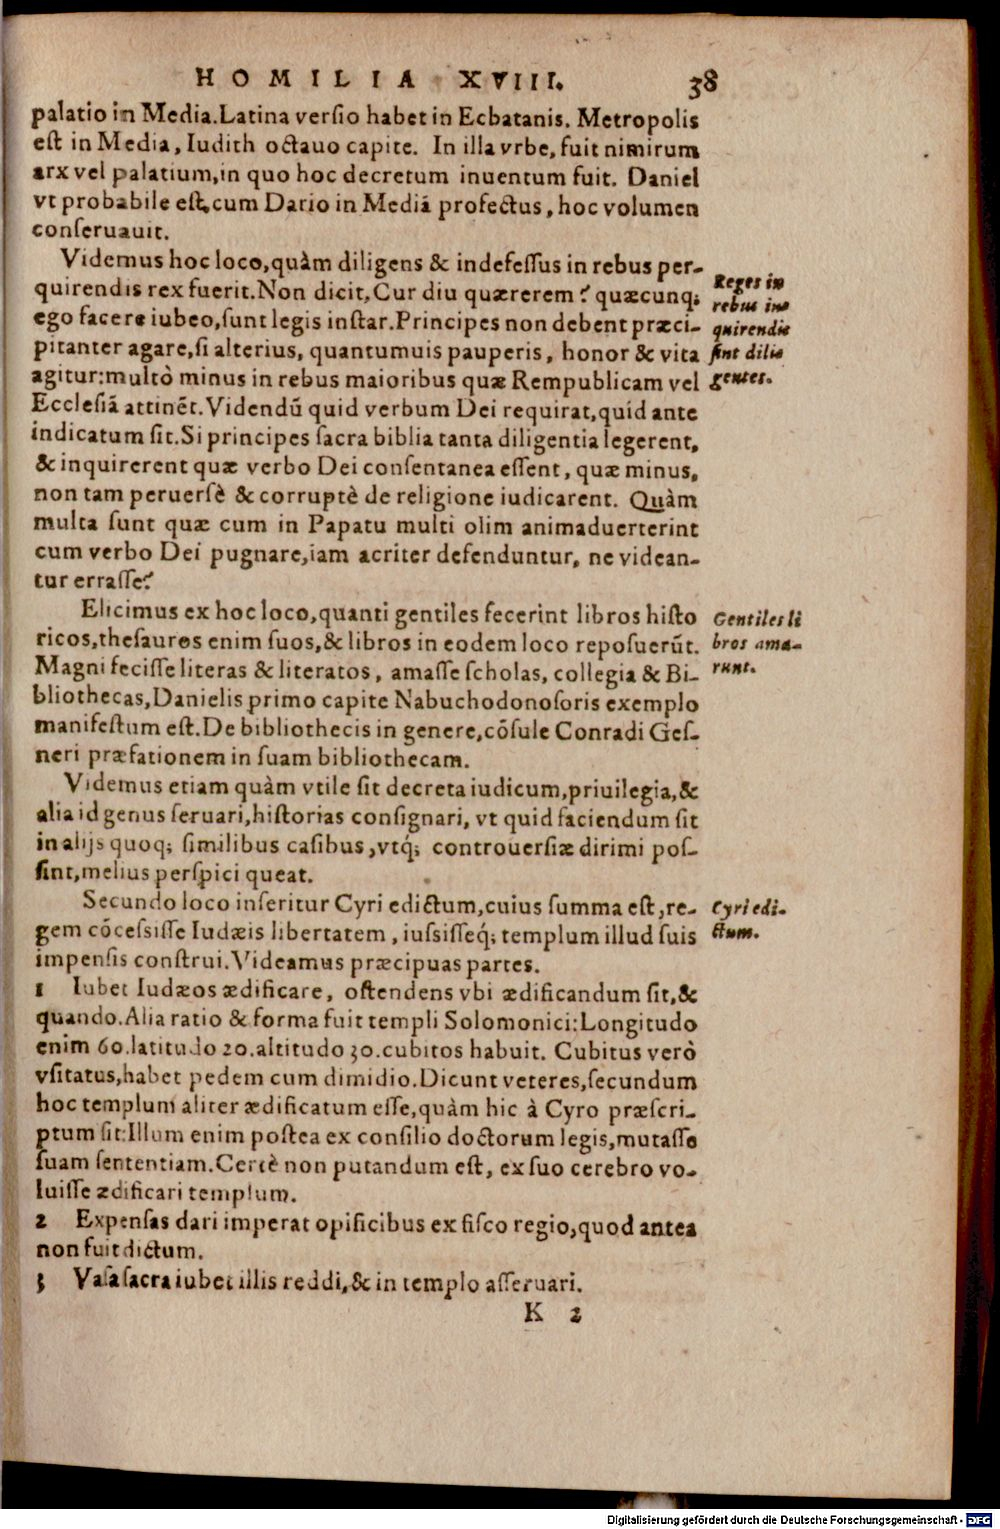 HOMILIA XVIII. 38
palatio in Media. Latina versio habet in Ecbatanis. Metropolis
est in Media, Iudith octauo capite. In illa vrbe, fuit nimirum
arx vel palatium, in quo hoc decretum inuentum fuit. Daniel
vt probabile est, cum Dario in Mediā profectus, hoc volumen
conseruauit.
Videmus hoc loco, quàm diligens & indefessus in rebus per-
quirendis rex fuerit. Non dicit, Cur diu quærerem? quæcunq;
ego facere iubeo, sunt legis instar. Principes non debent præci-
pitanter agare, si alterius, quantumuis pauperis, honor & vita
agitur: multò minus in rebus maioribus quæ Rempublicam vel
Ecclesiā attinēt. Videndū quid verbum Dei requirat, quid ante
indicatum sit. Si principes sacra biblia tanta diligentia legerent,
& inquirerent quæ verbo Dei consentanea essent, quæ minus,
non tam peruersè & corruptè de religione iudicarent. Quàm
multa sunt quæ cum in Papatu multi olim animaduerterint
cum verbo Dei pugnare, iam acriter defenduntur, ne videan-
tur errasse?
Reges in
rebus in-
quirendis
sint dili-
gentes.
Elicimus ex hoc loco, quanti gentiles fecerint libros histo
ricos, thesauros enim suos, & libros in eodem loco reposuerūt.
Magni fecisse literas & literatos, amasse scholas, collegia & Bi-
bliothecas, Danielis primo capite Nabuchodonosoris exemplo
manifestum est. De bibliothecis in genere, cōsule Conradi Ges-
neri præfationem in suam bibliothecam.
Gentiles li
bros ama-
runt.
Videmus etiam quàm vtile sit decreta iudicum, priuilegia, &
alia id genus seruari, historias consignari, vt quid faciendum sit
in alijs quoq; similibus casibus, vtq́; controuersiæ dirimi pos-
sint, melius perspici queat.
Secundo loco inseritur Cyri edictum, cuius summa est, re-
gem cōcessisse Iudæis libertatem, iussisseq́; templum illud suis
impensis construi. Videamus præcipuas partes.
Cyri edi-
ctum.
1 Iubet Iudæos ædificare, ostendens vbi ædificandum sit, &
quando. Alia ratio & forma fuit templi Solomonici: Longitudo
enim 60. latitudo 20. altitudo 30. cubitos habuit. Cubitus verò
vsitatus, habet pedem cum dimidio. Dicunt veteres, secundum
hoc templum aliter ædificatum esse, quàm hic à Cyro præscri-
ptum sit: Illum enim postea ex consilio doctorum legis, mutasse
suam sententiam. Certè non putandum est, ex suo cerebro vo-
luisse ædificari templum.
2 Expensas dari imperat opificibus ex fisco regio, quod antea
non fuit dictum.
3 Vasa sacra iubet illis reddi, & in templo asseruari.
K 2
Digitalisierung gefördert durch die Deutsche Forschungsgemeinschaft - DFG